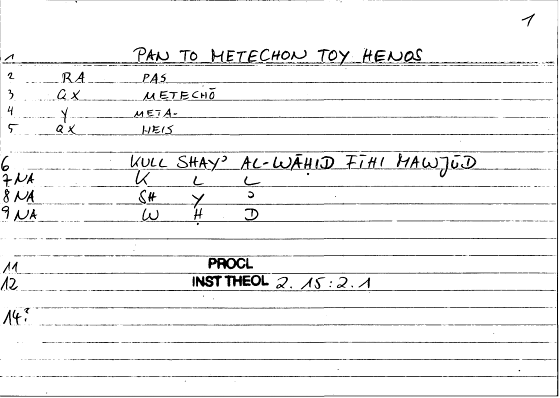 1
1 PAN TO METECHON TOY HENOS
2 RA PAS
3 QX METECHŌ
4 Y META-
5 QX HEIS
6 KULL SHAYʾ AL-WĀḤID FĪHI MAWJŪD
7 NA K L L
8 NA SH Y ʾ
9 NA W Ḥ D
11 PROCL
12 INST THEOL 2.15:2.1
14?